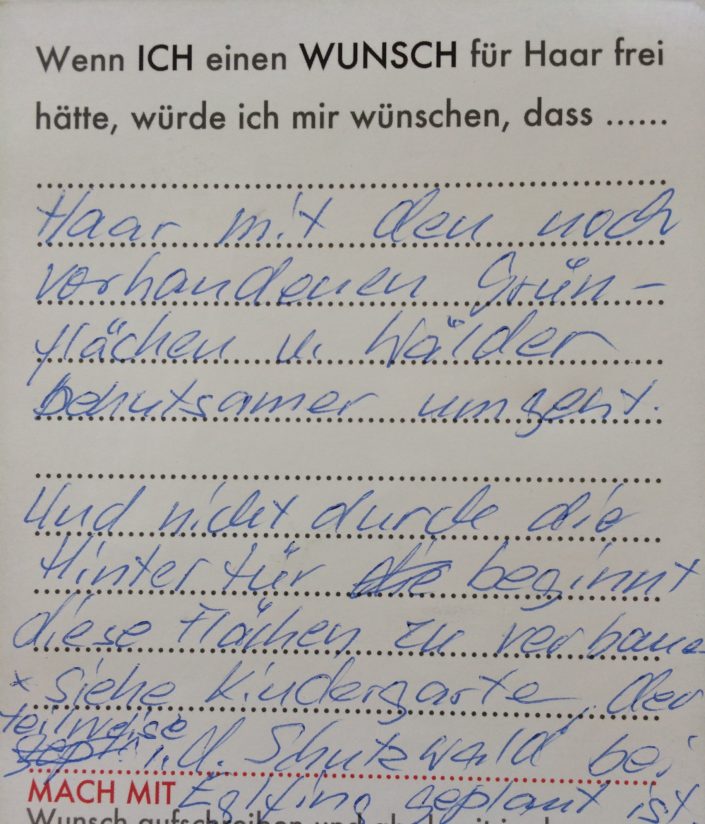 Wenn ICH einen WUNSCH für Haar frei
hätte, würde ich mir wünschen, dass ......
Haar mit den noch
vorhandenen Grün-
flächen u. Wälder
behutsamer umgeht.
Und nicht durch die
Hintertür beginnt
diese Flächen zu verbauen
* siehe Kindergarten, der
teilweise
i.d. Schutzwald bei
MACH MIT Eglfing geplant ist.
Wunsch aufschreiben und